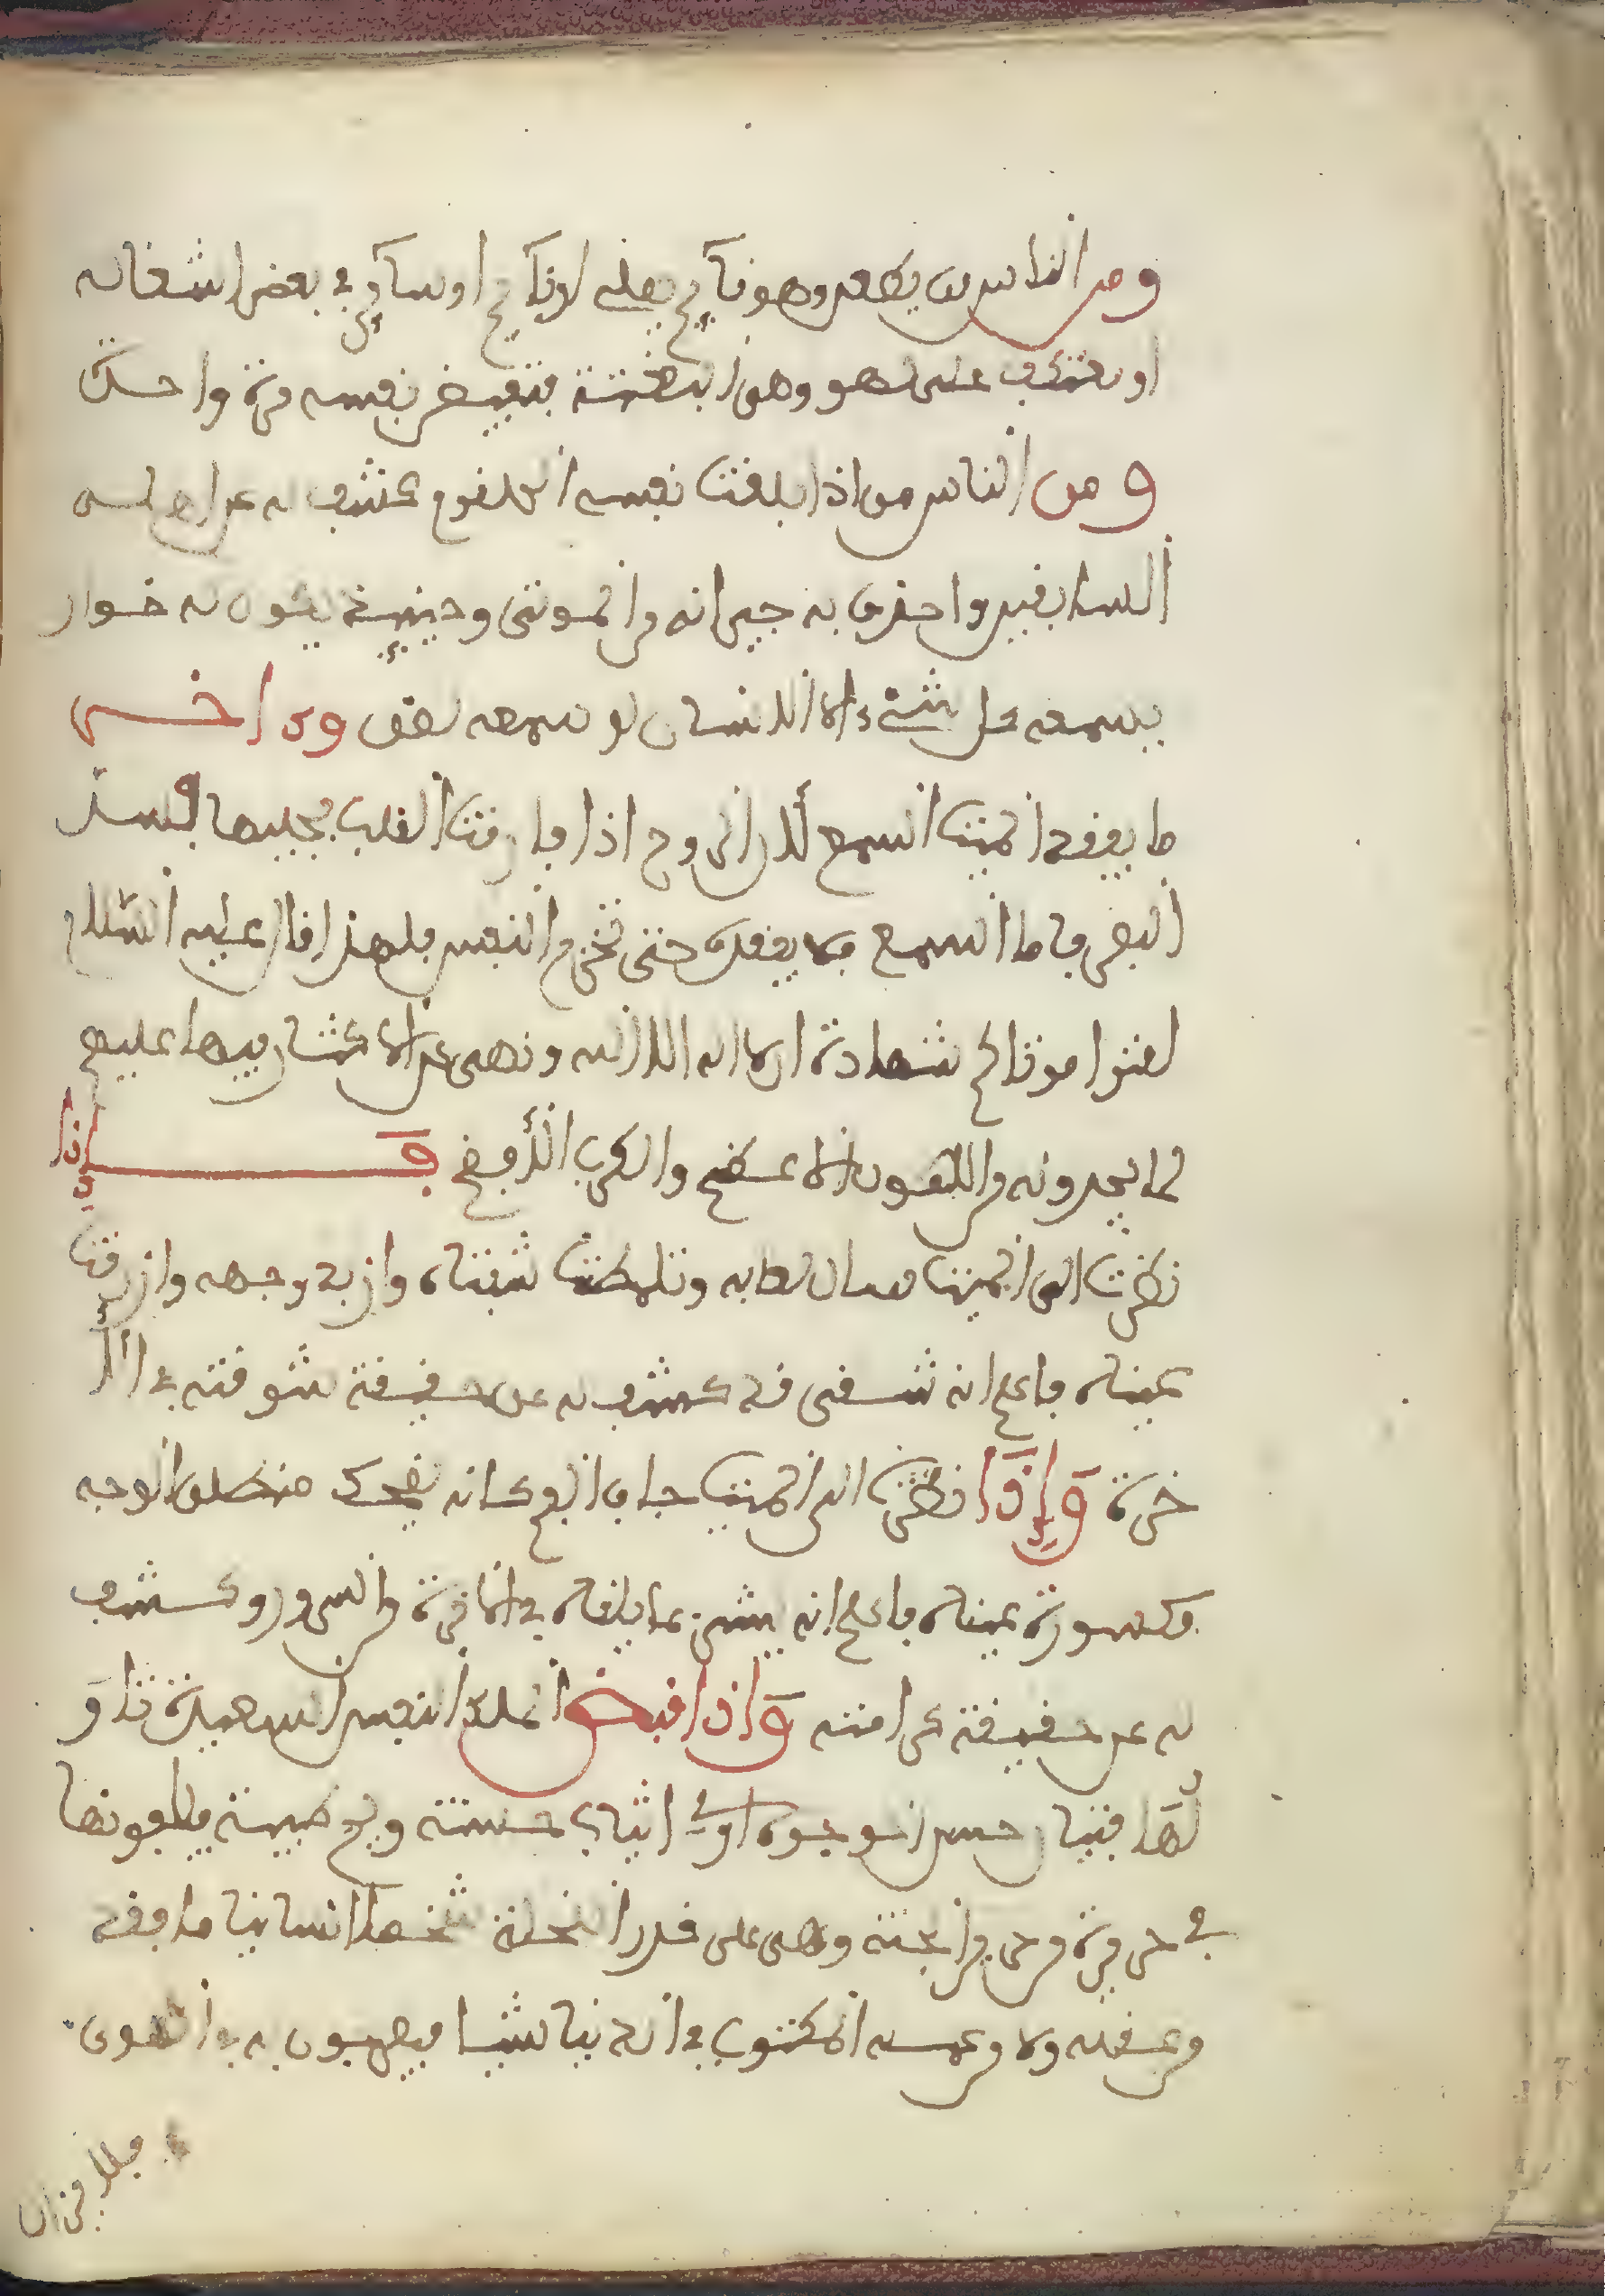 ومن الناس من يطعن وهو قآئم يصلے او نآئم او سآئر في بعض اشغاله
او معتكف على لهو وهي البغتة فتقبض نفسه مرة واحدة
ومن الناس من اذا بلغت نفسه الحلقوم كشف له عن اهله
السابقين واحدق به جيرانه من الموتى وحينئذ يكون له خوار
يسمعه كل شيء الا الانسان لو سمعه لصعق وءاخـــر
ما يفقد الميت السمع لأن الروح اذا فارقت القلب بجليها فسد
البصر فاما السمع فلا يفقده حتى تخرج النفس فلهذا قال عليه السلام
لقنوا موتاكم شهادة ان لا اله الا الله ونهى عن الاكثار بها عليهم
لما يجدونه من الهول الاعظم والكرب الأفخم فـــإذا
نظرت الى الميت سال لعابه وتقلصت شفتاه واربد وجهه وازرقت
عيناه فاعلم انه شقى قد كشف له عن حقيقة شقوته في الأ
خرة وَإذا نظرت الى الميت جاف الفم كانه يضحك منطلق الوجه
مكسورة عينه فاعلم انه بشر بما يلقاه في الاخرة من السرور وكشف
له عن حقيقة كرامته وَاذا قبض الملك النفس السعيدة تناو
لها فتيان حسن الوجوه اولي اثياب حسنة وريح طيبة فيلفونها
في حريرة من حرير الجنة وهى على قدر النحلة شخصا انسانيا ما فقد
من عقله ولا من عمله المكتوب في الدنيا شيئا فيعرجون به في الهوى
فلا يزال